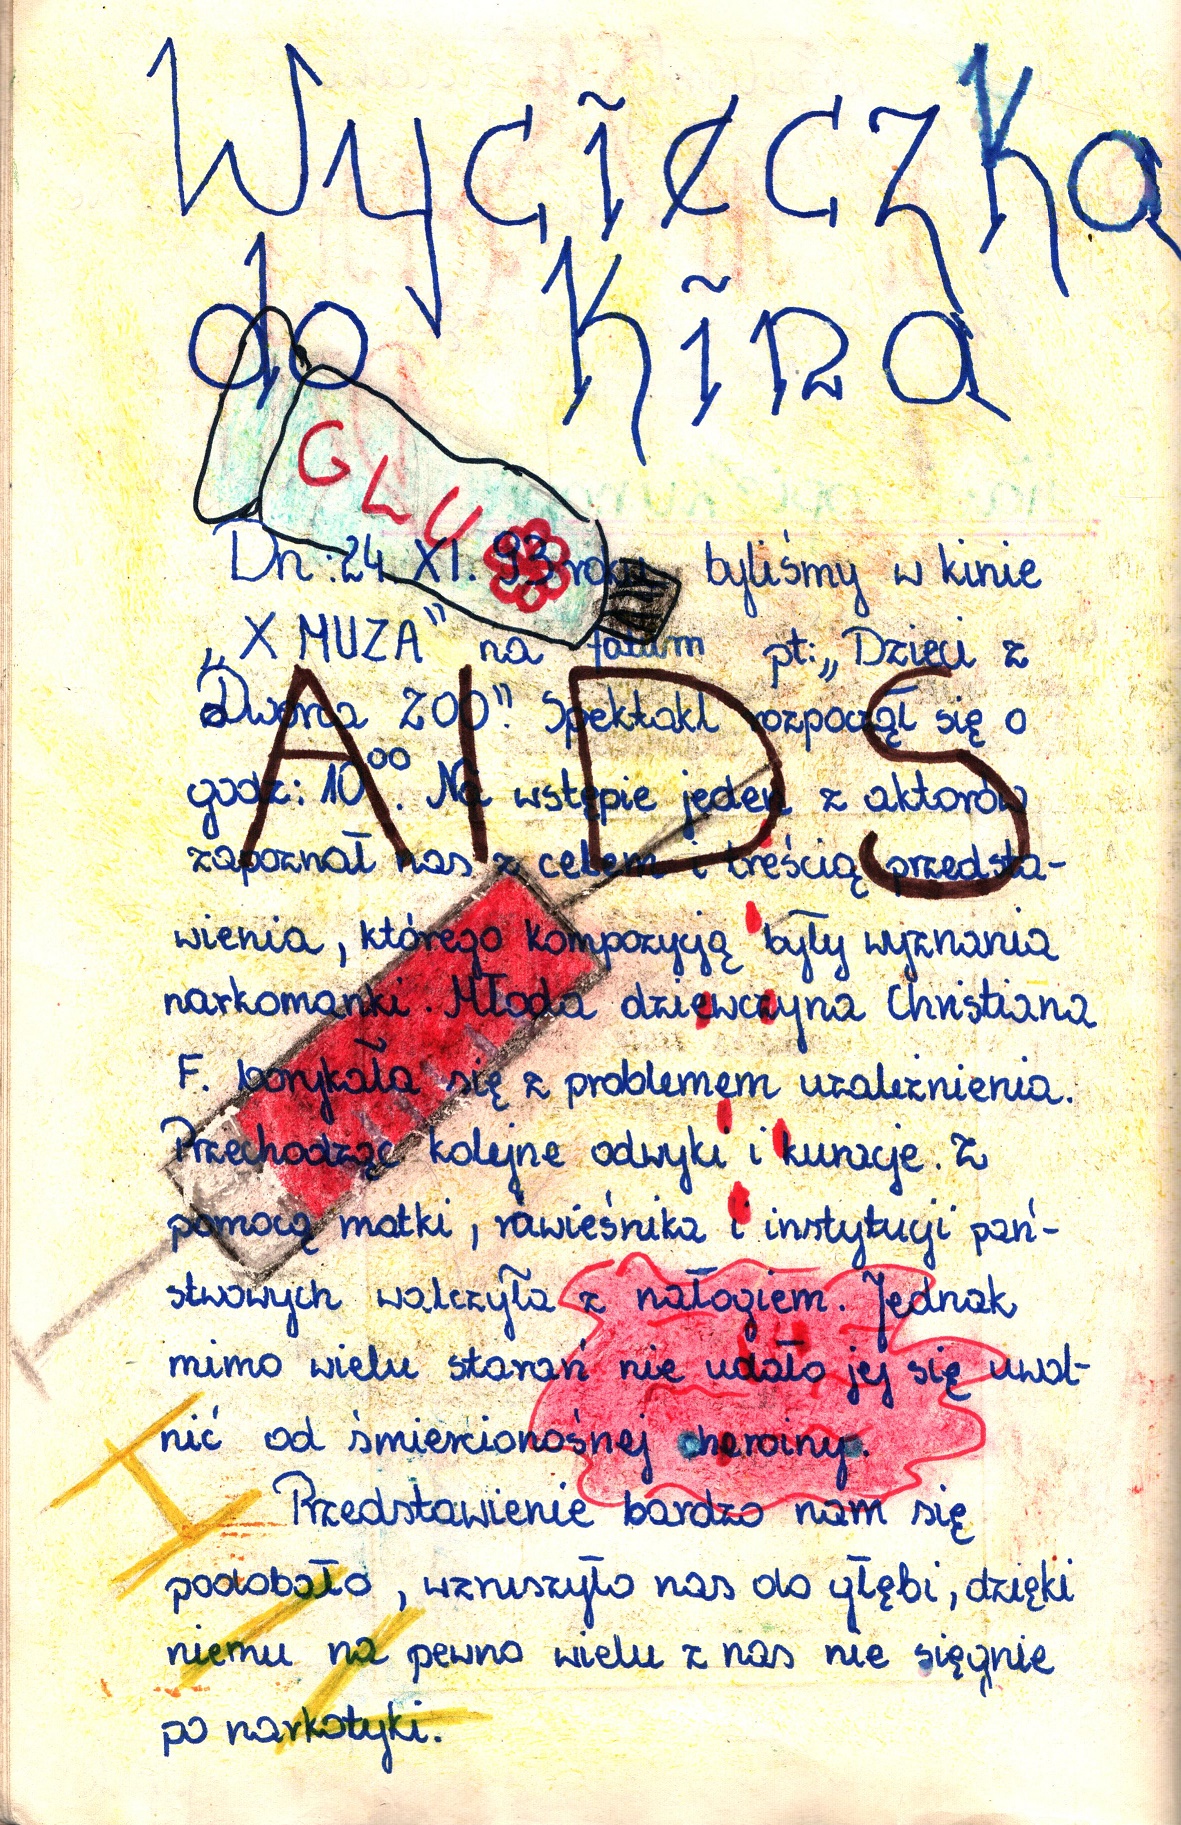 Wycieczka
do Kina
GLU
Dn: 24 XI. 93 roku byliśmy w kinie
„X MUZA" na pt: „Dzieci z
Dworca ZOO". Spektakl rozpoczął się o
godz: 10⁰⁰. Na wstępie jeden z aktorów
AIDS
zapoznał nas z celem i treścią przedsta-
wienia, którego kompozycją były wyznania
narkomanki. Młoda dziewczyna Christiana
F. borykała się z problemem uzależnienia.
Przechodząc kolejne odwyki i kuracje. Z
pomocą matki, rówieśnika i instytucji pań-
stwowych walczyła z nałogiem. Jednak
mimo wielu starań nie udało jej się uwol-
nić od śmiercionośnej heroiny.
HIV
Przedstawienie bardzo nam się
podobało, wzruszyło nas do głębi, dzięki
niemu na pewno wielu z nas nie sięgnie
po narkotyki.